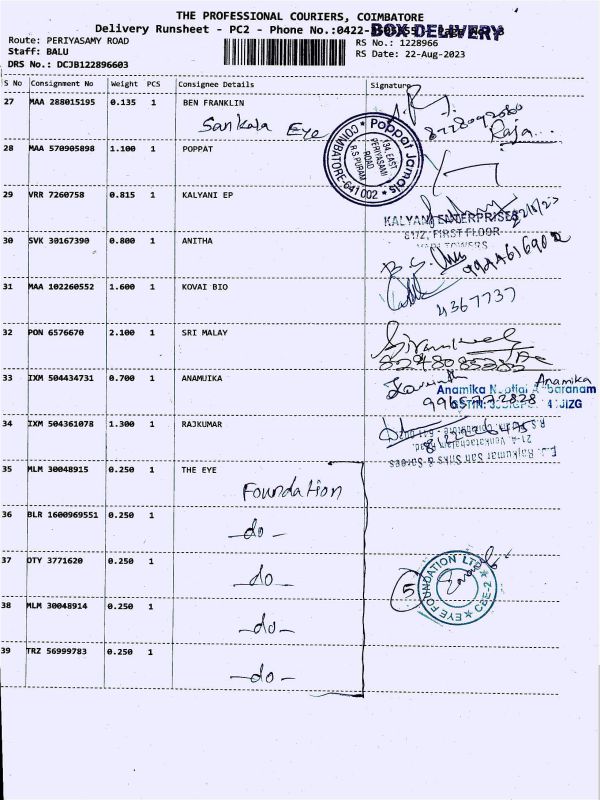 THE PROFESSIONAL COURIERS, COIMBATORE
Delivery Runsheet - PC2 - Phone No.:0422-
BOX DELIVERY
Route: PERIYASAMY ROAD
RS No.: 1228966
Staff: BALU
RS Date: 22-Aug-2023
DRS No.: DCJB122896603
S No Consignment No Weight PCS Consignee Details Signature
27 MAA 288015195 0.135 1 BEN FRANKLIN
Sankala Eye
Raja...
28 MAA 570905898 1.100 1 POPPAT
Poppat Jamals
134 EAST
PERIYASAMI
ROAD
R.S PURAM
COIMBATORE-641 002
29 VRR 7260758 0.815 1 KALYANI EP
KALYANI ENTERPRISES
FIRST FLOOR
TOWERS
30 SVK 30167390 0.800 1 ANITHA
31 MAA 102260552 1.600 1 KOVAI BIO
4367737
32 PON 6576670 2.100 1 SRI MALAY
8248085282
33 IXM 504434731 0.700 1 ANAMJIKA
Anamika
Anamika
9965772828
34 IXM 504361078 1.300 1 RAJKUMAR
21-A, Venkatachalam
E.J. Rajkumar San Silks & Sarees
35 MLM 30048915 0.250 1 THE EYE
Foundation
36 BLR 1600969551 0.250 1
-do-
37 OTY 3771620 0.250 1
-do-
5
EYE FOUNDATION LTD
CBE-2
38 MLM 30048914 0.250 1
-do-
39 TRZ 56999783 0.250 1
-do-